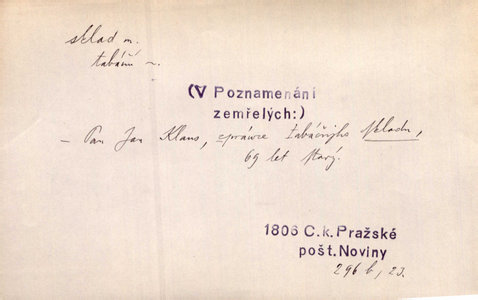 sklad m.
tabáčni
(V Poznamenání
zemřelých:)
– Pan Jan Klaus, správce tabáčnjho skladu,
69 let starý.
1806 C.k. Pražské
pošt. Noviny
296 b, 23.